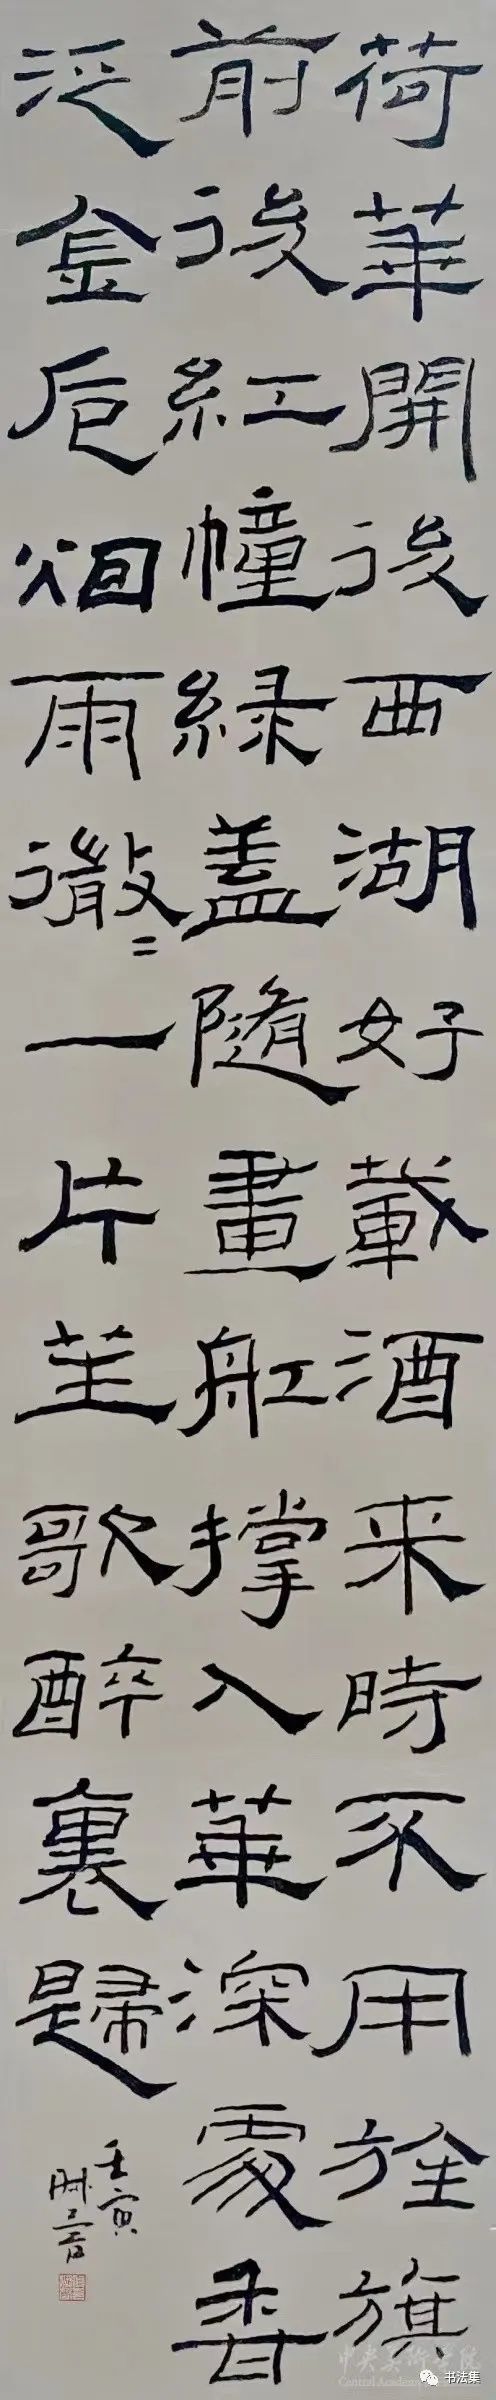 荷華開後西湖好載酒来時不用旌旗
前後紅幢緑盖隨畫舡撑入華深處香
泛金卮烟雨微〻一片笙歌醉裏歸
壬寅
中央美術學院
Central Academy
书法集